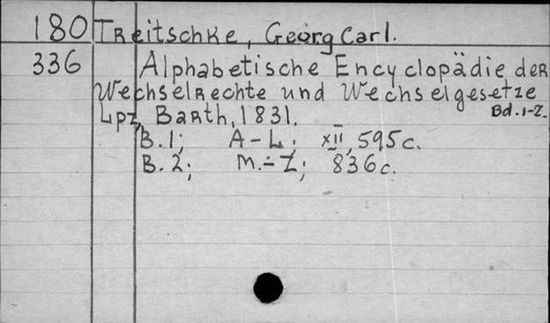 180 Treitschke, Georg Carl.
336 Alphabetische Encyclopädie der
Wechselrechte und Wechselgesetze
Lpz, Barth, 1831. Bd. 1-2.
B. 1; A-L; XII, 595c.
B. 2; M.-Z; 836c.